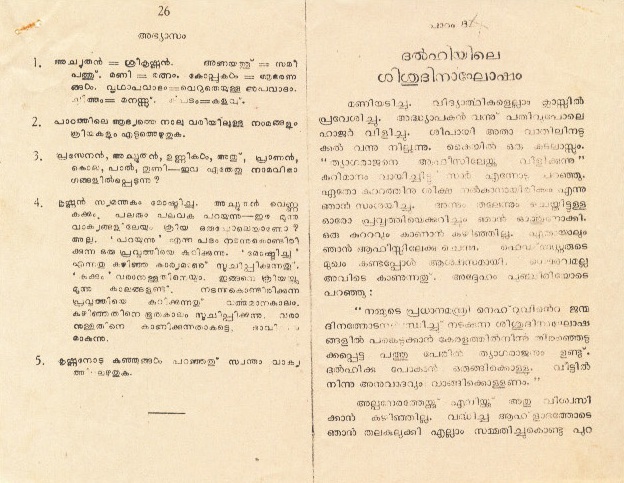 26
അഭ്യാസം
1. അച്യുതൻ = ശ്രീകൃഷ്ണൻ. അണയത്ത് = സമീ
പത്തു്. മണി = രത്നം. കോപ്പുകൾ = ആഭരണ
ങ്ങൾ. വൃഥാപവാദം=വെറുതെയുള്ള അപവാദം.
മനസ്സ്. കളവ്.
2. പാഠത്തിലെ ആദ്യത്തെ നാലു വരിയിലുള്ള നാമങ്ങളും
ക്രിയകളും എടുത്തെഴുതുക.
3. പ്രസേനൻ, അച്യുതൻ, ഉണ്ണികൾ, അതു്, പ്രാണൻ,
കൊല, പാൽ, തുണി—ഇവ ഏതേതു നാമവിഭാ
ഗങ്ങളിൽപ്പെടുന്നു ?
4. കൃഷ്ണൻ സ്യമന്തകം മോഷ്ടിച്ചു. അച്യുതൻ വെണ്ണ
കക്കും. പലതും പലവക പറയുന്നു—ഈ മൂന്നു
വാക്യങ്ങളിലേയും ക്രിയ ഒരുപോലെയാണോ ?
അല്ല. 'പറയുന്നു' എന്ന പദം നടന്നുകൊണ്ടിരി
ക്കുന്ന ഒരു പ്രവൃത്തിയെ കുറിക്കുന്നു. 'മോഷ്ടിച്ചു'
എന്നതു കഴിഞ്ഞ കാര്യമാണ് സൂചിപ്പിക്കുന്നതു്.
'കക്കും' വരാനുള്ളതിനെയും. ഇങ്ങനെ ക്രിയയ്ക്കു
മൂന്നു കാലങ്ങളുണ്ട്. നടന്നുകൊണ്ടിരിക്കുന്ന
പ്രവൃത്തിയെ കുറിക്കുന്നതു് വർത്തമാനകാലം.
കഴിഞ്ഞതിനെ ഭൂതകാലം സൂചിപ്പിക്കുന്നു. വരാ
നുള്ളതിനെ കാണിക്കുന്നതാകട്ടെ, ഭാവി
മാകുന്നു.
5. കൃഷ്ണനോടു കുഞ്ഞുങ്ങൾ പറഞ്ഞതു് സ്വന്തം വാക്യ
ത്തി ലെഴുതുക.
പാഠം
ദൽഹിയിലെ
ശിശുദിനാഘോഷം
മണിയടിച്ചു. വിദ്യാർത്ഥികളെല്ലാം ക്ലാസ്സിൽ
പ്രവേശിച്ചു. അദ്ധ്യാപകൻ വന്നു് പതിവുപോലെ
ഹാജർ വിളിച്ചു. ശിപായി അതാ വാതിലിനടു
ക്കൽ വന്നു നില്ക്കുന്നു. കൈയിൽ ഒരു കടലാസ്സും.
"ത്യാഗരാജനെ ആഫീസിലേയ്ക്കു വിളിക്കുന്നു"
കുറിമാനം വായിച്ചിട്ട് സാർ എന്നോടു പറഞ്ഞു.
ഏതോ കുററത്തിനു ശിക്ഷ നൽകാനായിരിക്കും എന്നു
ഞാൻ സംശയിച്ചു. അന്നും തലേന്നും ചെയ്തിട്ടുള്ള
ഓരോ പ്രവൃത്തിയെക്കുറിച്ചും ഞാൻ ഓർത്തുനോക്കി.
ഒരു കുററവും കാണാൻ കഴിഞ്ഞില്ല. എന്തായാലും
ഞാൻ ആഫീസ്സിലേക്കു ചെന്നു. ഹെഡ്മാസ്റ്ററുടെ
മുഖം കണ്ടപ്പോൾ ആശ്വാസമായി. ഗൌരവമല്ല
അവിടെ കാണുന്നതു്. അദ്ദേഹം പുഞ്ചിരിയോടെ
പറഞ്ഞു :
"നമ്മുടെ പ്രധാനമന്ത്രി നെഹ്റുവിൻെറ ജന്മ
ദിനത്തോടനുബന്ധിച്ച് നടക്കുന്ന ശിശുദിനാഘോഷ
ങ്ങളിൽ പങ്കെടുക്കാൻ കേരളത്തിൽനിന്നു തിരഞ്ഞെടു
ക്കപ്പെട്ട പത്തു പേരിൽ ത്യാഗരാജനും ഉണ്ടു്.
ദൽഹിക്കു പോകാൻ ഒരുങ്ങിക്കൊള്ളൂ. വീട്ടിൽ
നിന്നു അനുവാദവും വാങ്ങിക്കൊള്ളണം."
അല്പനേരത്തേയ്ക്കു എനിയ്ക്കു അതു വിശ്വസി
ക്കാൻ കഴിഞ്ഞില്ല. വർദ്ധിച്ച ആഹ്ളാദത്തോടെ
ഞാൻ തലകുലുക്കി എല്ലാം സമ്മതിച്ചുകൊണ്ടു പുറ